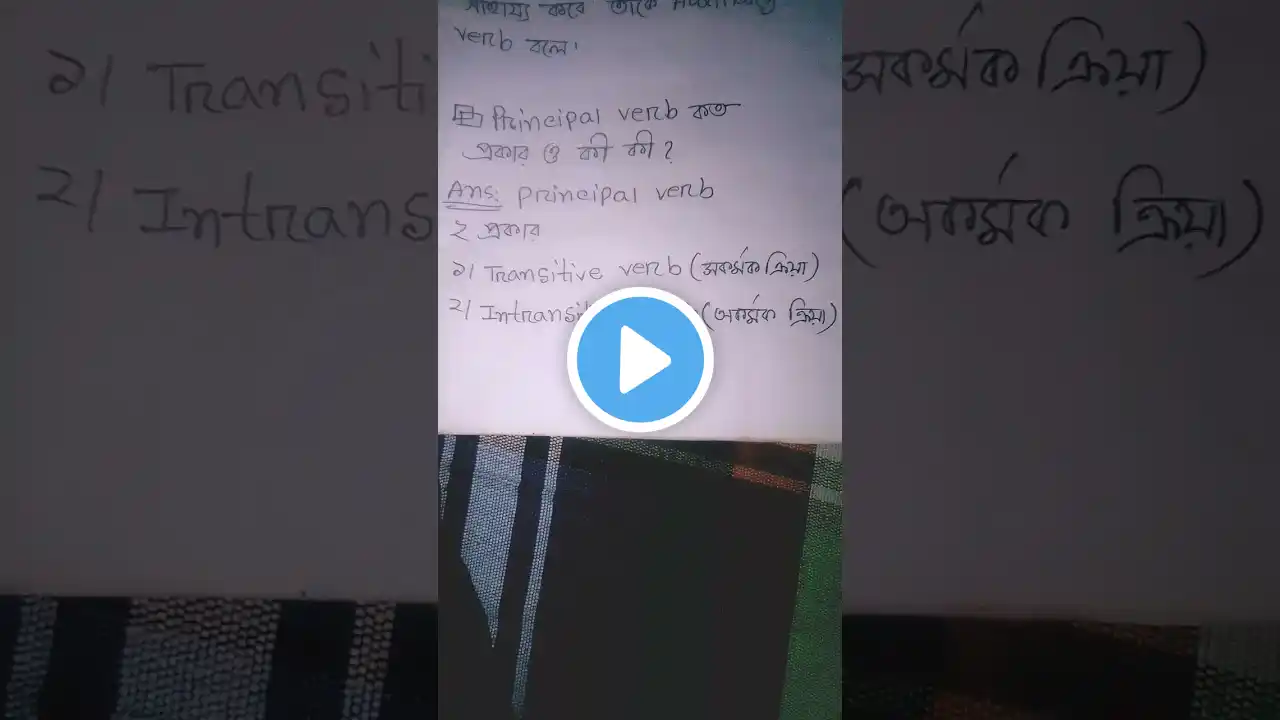 সাহায্য করে তাকে Auxiliary
verb বলে।
Principal verb কত
প্রকার ও কী কী ?
Ans: Principal verb
২ প্রকার
১। Transitive verb (সকর্মক ক্রিয়া)
২। Intransi (অকর্মক ক্রিয়া)